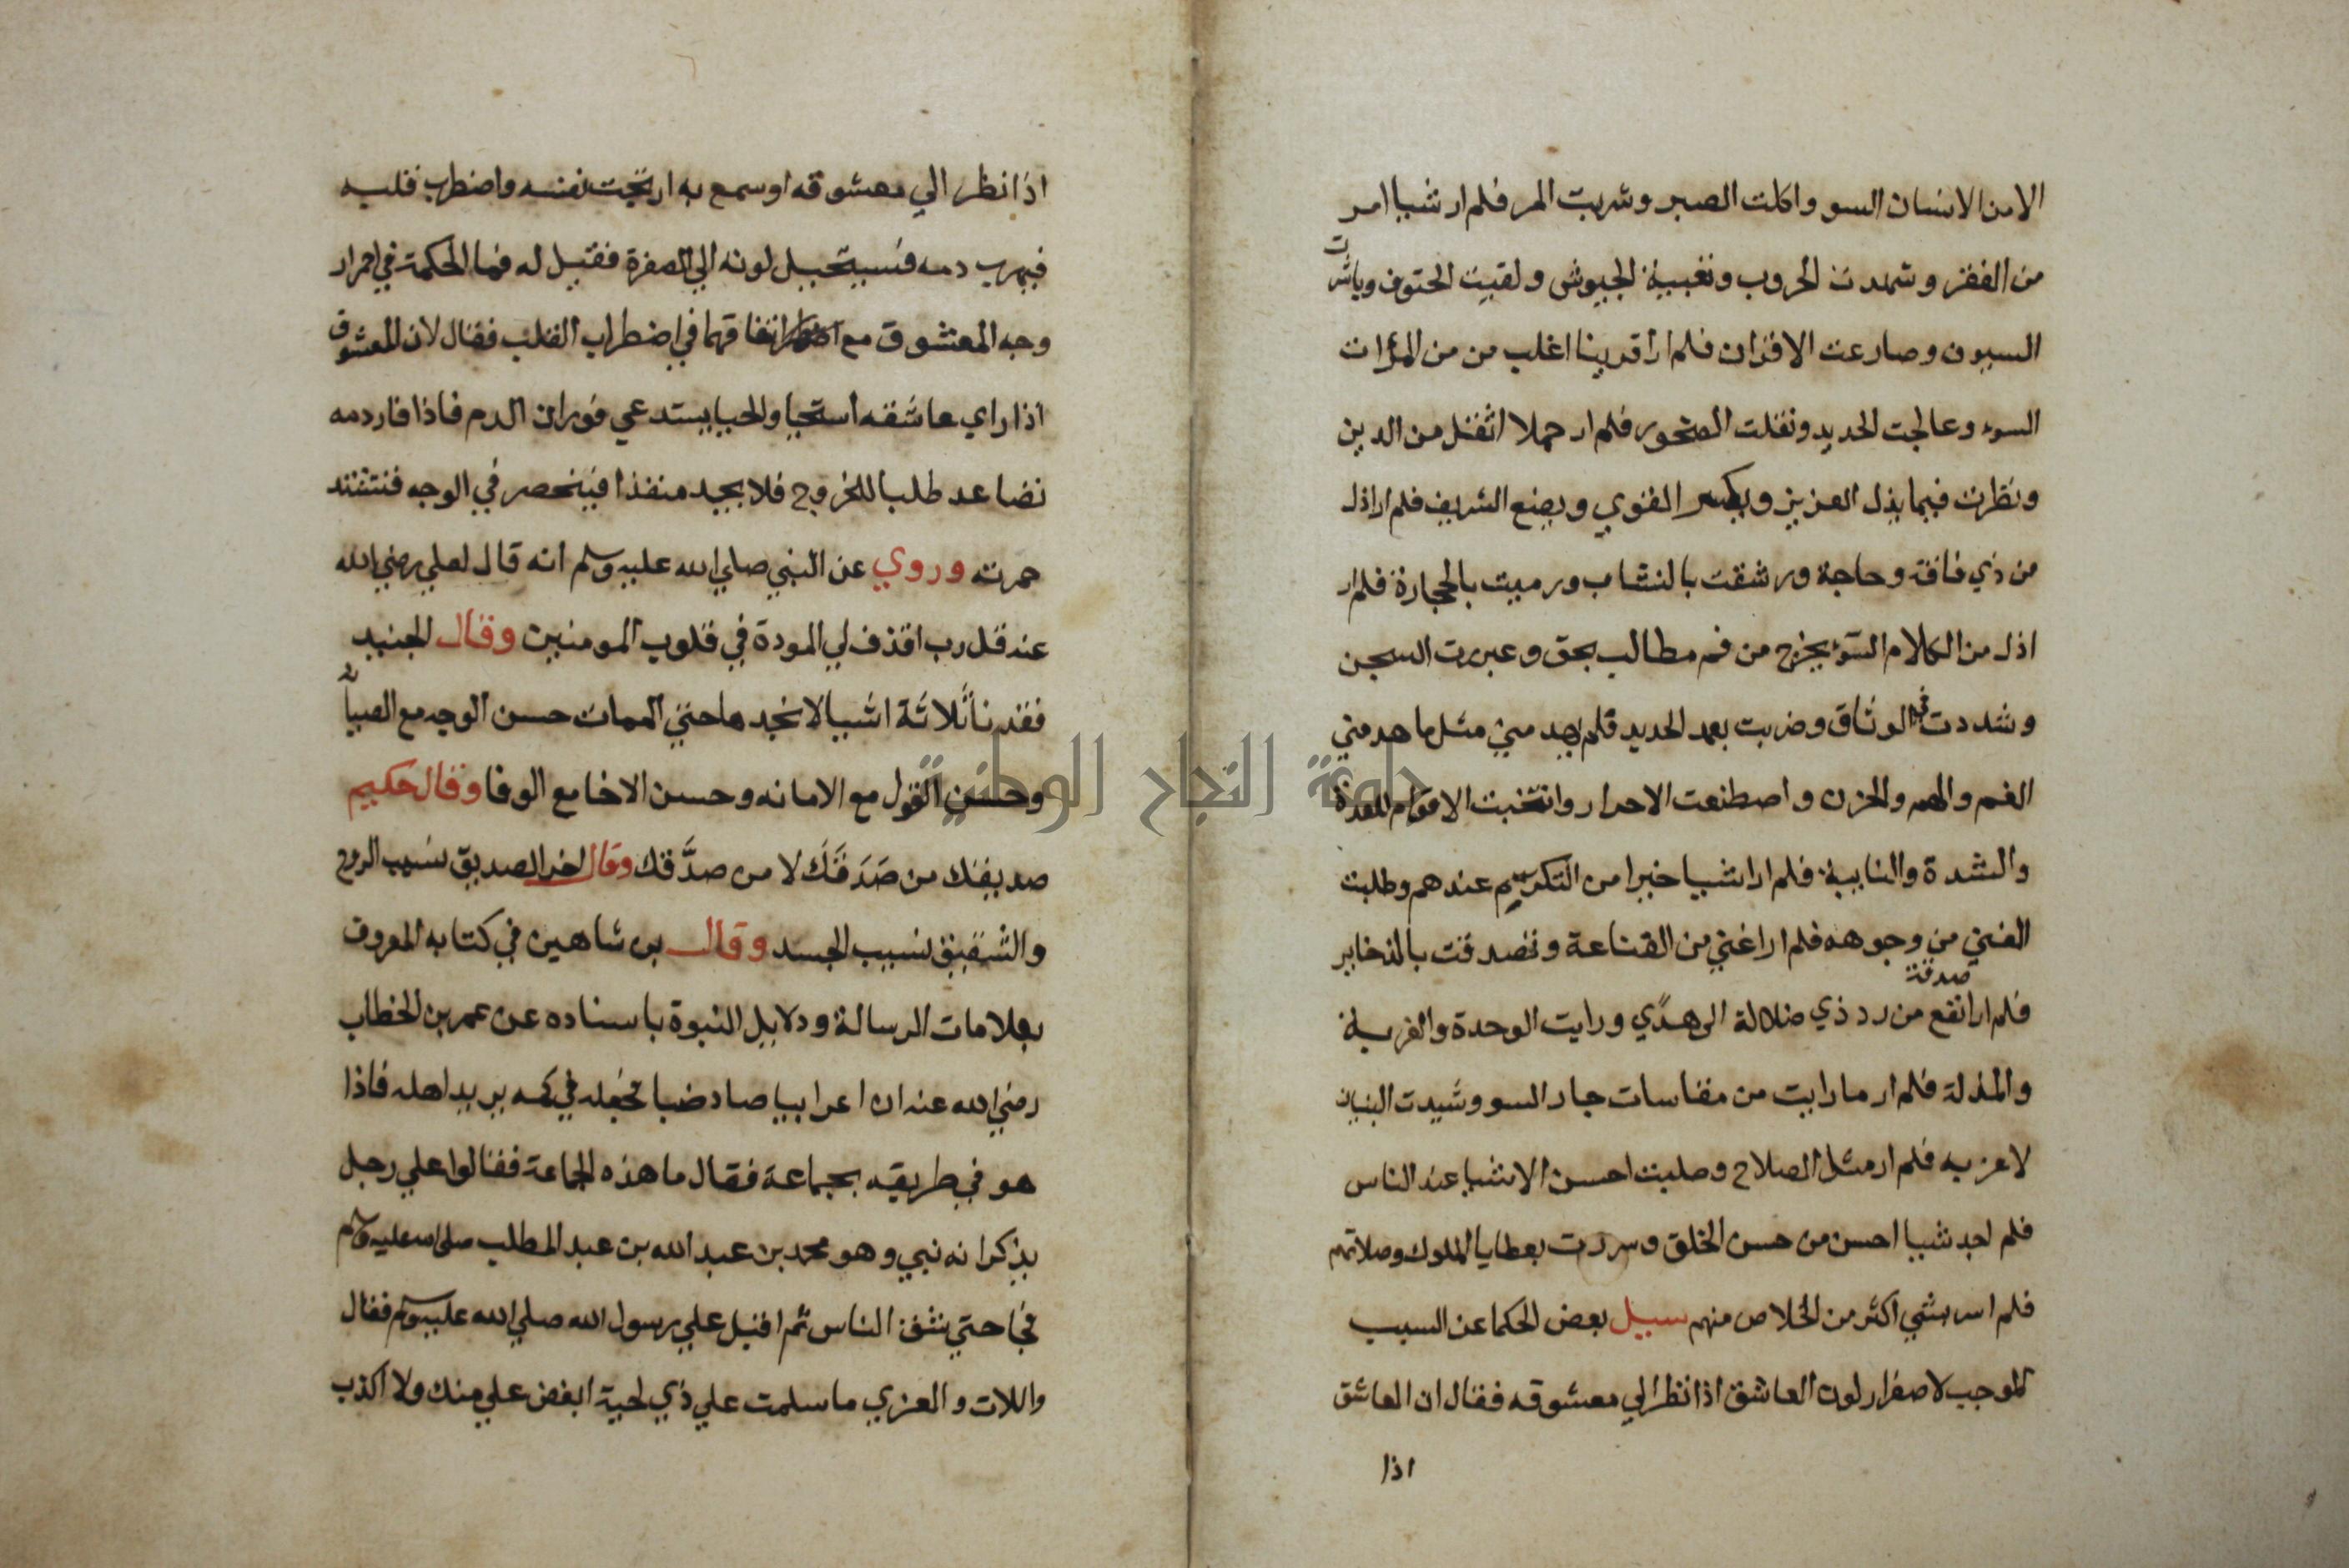 الا من الانسان السو واكلت الصبر وشربت المر فلم ار شيا امر
من الفقر وشهدت الحروب وتغبية الجيوش ولقيت الحتوف وباشرت
السيوف وصارعت الاقران فلم ار اقرينا اغلب من من المرات
السوء وعالجت الحديد ونقلت الصخور فلم ار حملا اثقل من الدين
ونظرت فيما يذل العزيز ويكسر القوي ويضع الشريف فلم ار اذل
من ذي فاقة وحاجة ورشقت بالنشاب ورميت بالحجارة فلم ار
اذل من الكلام السوء يخرج من فم مطالب بحق وعبرت السجن
وشددت في الوثاق وضربت بعمد الحديد فلم يهد مني مثل ما هدمني
الغم والهم والحزن واصطنعت الاحرار وانتخبت الاقوام للعدة
والشدة والنايبة فلم ار اشيا خيرا من التكريم عندهم وطلبت
الغني من وجوهه فلم ار اغني من القناعة وتصدقت بالذخاير
فلم ار انفع من رد ذي ضلالة الى هدًي ورايت الوحدة والغربة
صدقة
والمذلة فلم ار ما رايت من مقاسات جار السو وشيدت البنيان
لاعز به فلم ار مثل الصلاح وصليت احسن الاشيا عند الناس
فلم اجد شيا احسن من حسن الخلق وسررت بعطايا الملوك وصلاتهم
فلم اسر بشي اكثر من الخلاص منهم سيل بعض الحكما عن السبب
الموجب لاصفرار لون العاشق اذا نظر الي معشوقه فقال ان العاشق
اذا
اذا نظر الي معشوقه او سمع به ارتجت نفسه واضطرب قلبه
فيهرب دمه فسيتحيل لونه الي الصفرة فقيل له فما الحكمة في احمرار
وجه المعشوق مع اتفاقهما في اضطراب القلب فقال لان المعشوق
اذا راي عاشقه استحيا والحيا يستدعي فوران الدم فاذا فار دمه
تصاعد طلبا للخروج فلا يجد منفذا فينحصر في الوجه فتشتد
حمرته وروي عن النبي صلي الله عليه وسلم انه قال لعلي رضي الله
عنه قل رب اقذف لي المودة في قلوب المومنين وقال الجنيد
فقدنا ثلاثة اشيا لا نجدها حتي الممات حسن الوجه مع الصيانة
وحسن القول مع الامانه وحسن الاخا مع الوفا وقال حكيم
صديقك من صَدَقَكَ لا من صدَّقك وقال اخر الصديق نسيب الروح
والشقيق نسيب الجسد وقال بن شاهين في كتابه المعروف
بعلامات الرسالة ودلايل النبوة باسناده عن عمر بن الخطاب
رضي الله عنه ان اعرابيا صاد ضبا فجعله في كمه يريد اهله فاذا
هو في طريقه بجماعة فقال ما هذه الجماعة فقالوا علي رجل
يذكر انه نبي وهو محمد بن عبد الله بن عبد المطلب صلي الله عليه وسلم
فجا حتي شق الناس ثم اقبل علي رسول الله صلي الله عليه وسلم فقال
واللات والعزي ما سلمت علي ذي لحية ابغض علي منك ولا اكذب
جامعة النجاح الوطنية